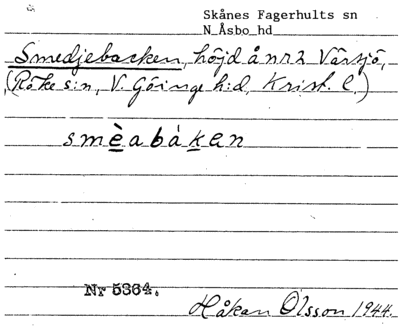 Skånes Fagerhults sn
N Åsbo hd
Smedjebacken, höjd å nr 2 Vårsjö,
(Röke s:n, V. Göinge h:d, Krist. l.)
smèabàken
Nr 5364.
Håkan Olsson 1944.